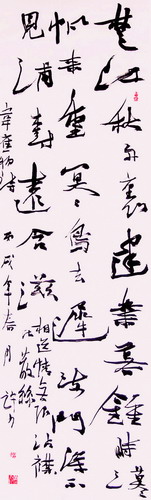 楚江微雨裏建業暮鐘時漠々
帆來重冥々鳥去遲海門深不
見浦樹遠含滋
相送情無限沾襟
比散絲
韋應物詩
丙戌年春月